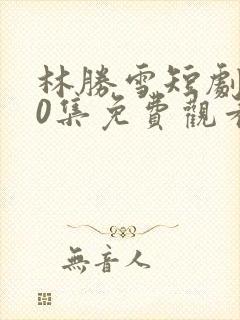 林勝雪短劇
0集免費觀看
無音人